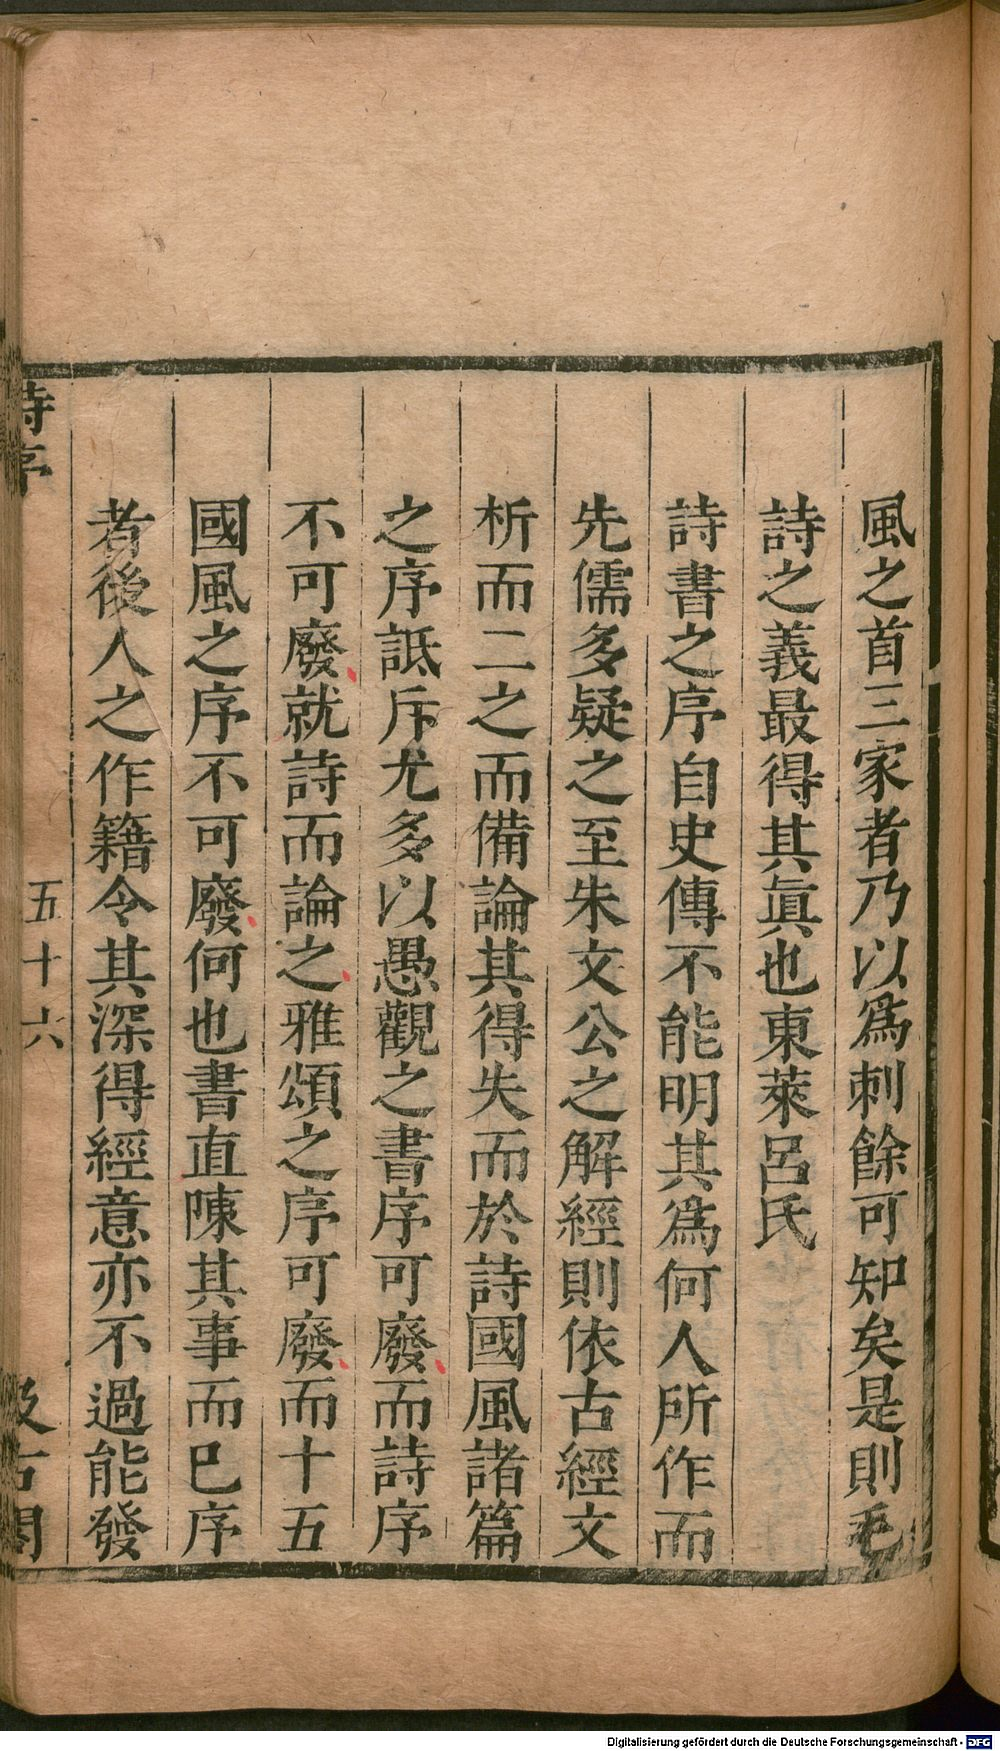 風之首三家者乃以爲刺餘可知矣是則毛
詩之義最得其眞也東萊呂氏
詩書之序自史傳不能明其爲何人所作而
先儒多疑之至朱文公之解經則依古經文
析而二之而備論其得失而於詩國風諸篇
之序詆斥尤多以愚觀之書序可廢而詩序
不可廢就詩而論之雅頌之序可廢而十五
國風之序不可廢何也書直陳其事而巳序
者後人之作籍令其深得經意亦不過能發
詩序
五十六
汲古閣
Digitalisierung gefördert durch die Deutsche Forschungsgemeinschaft - DFG